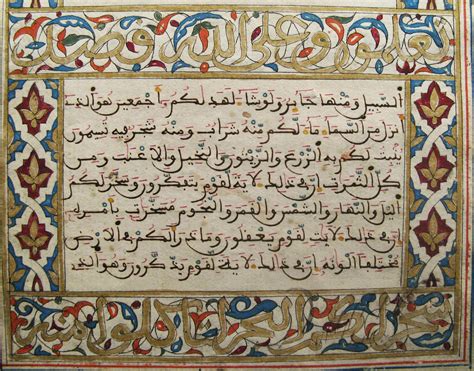 تعلمون وعلى الله قصد
السبيل ومنها جائر ولو شاء لهديكم أجمعين هو الذي
أنزل من السماء ماء لكم منه شراب ومنه شجر فيه تسيمون
ينبت لكم به الزرع والزيتون والنخيل والأعناب ومن
كل الثمرات إن في ذلك لآية لقوم يتفكرون وسخر لكم
اليل والنهار والشمس والقمر والنجوم مسخرات بأمره
إن في ذلك لآيات لقوم يعقلون وما ذرأ لكم في الأرض
مختلفا ألوانه إن في ذلك لآية لقوم يذكرون وهو الذي
سخر البحر لتأكلوا منه